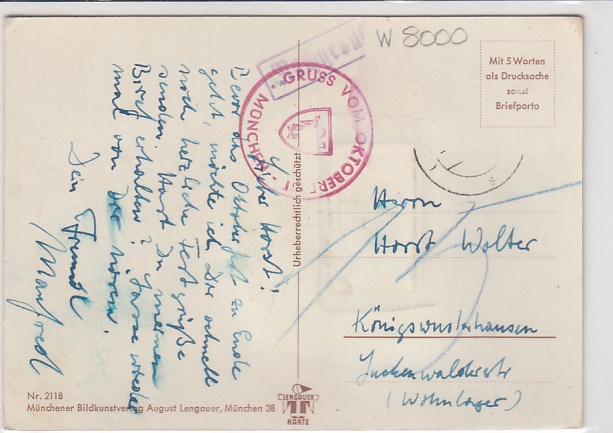 W 8000
Mit 5 Worten
als Drucksache
sonst
Briefporto
GRUSS VOM OKTOBERF
MÜNCHEN
Urheberrechtlich geschützt
Lieber Horst!
Bevor das Oktoberfest zu Ende
geht, möchte ich Dir schnell
noch herzliche Festgrüße
senden. Hast Du meinen
Brief erhalten? Lasse wieder
mal von Dir hören!
Dein Freund
Manfred
Herrn
Horst Wolter
Königswusterhausen
Luckenwalderstr
(Wohnlager)
Nr. 2118
Münchener Bildkunstverlag August Lengauer, München 38
LENGAUER
KARTE